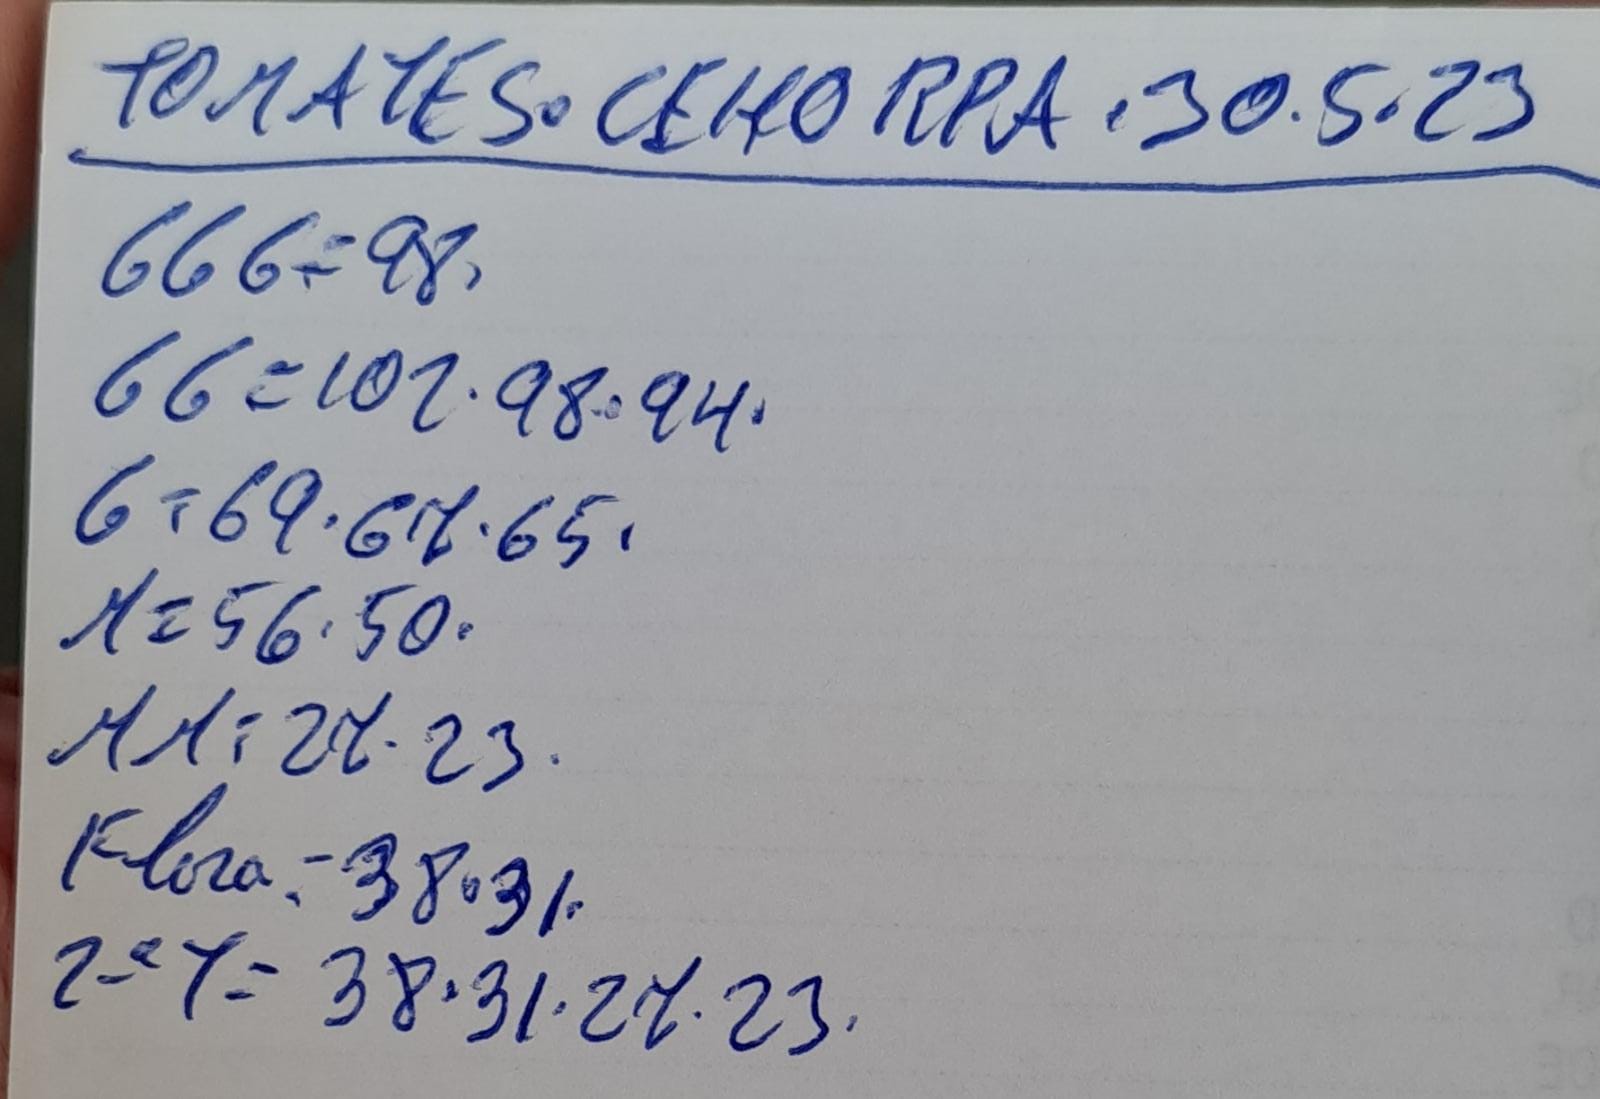 TOMATES. CEHORPA. 30.5.23
GGG=98.
GG=102.98.94.
G=69.67.65.
M=56.50.
MM=27.23.
Flora=38.31.
2ªY=38.31.27.23.